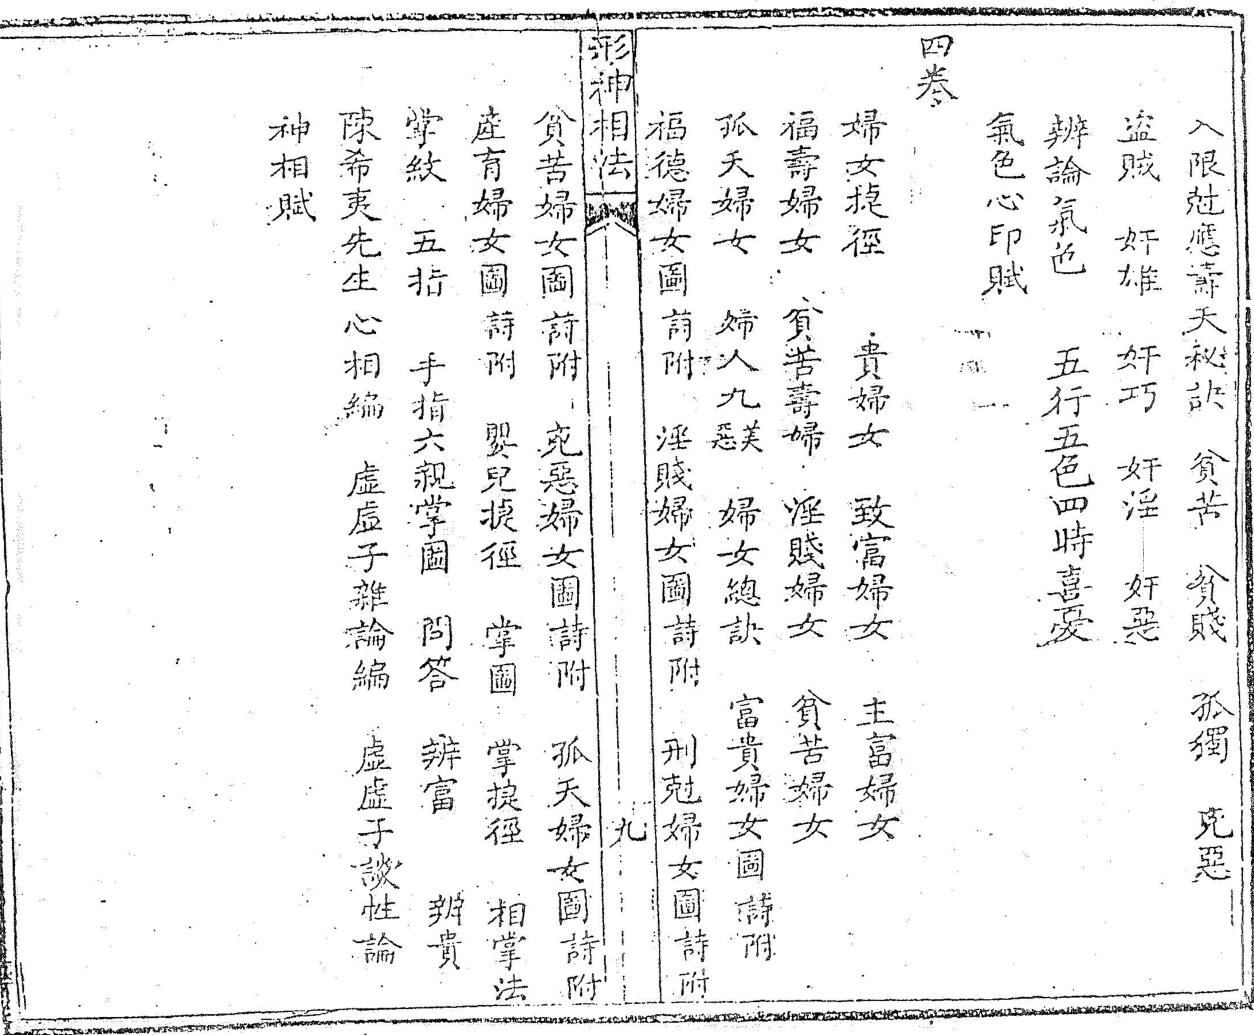 入限尅應壽夭秘訣　貧苦　貧賤　孤獨　兇惡
盗賊　奸雄　奸巧　奸淫　奸惡
辨論氣色　五行五色四時喜憂
氣色心印賦
四卷
婦女捷徑　貴婦女　致富婦女　主富婦女
福壽婦女　貧苦壽婦　淫賤婦女　貧苦婦女
孤夭婦女　婦人九美惡　婦女總訣　富貴婦女圖詩附
福德婦女圖詩附　淫賤婦女圖詩附　刑尅婦女圖詩附
形神相法　九
貧苦婦女圖詩附　兇惡婦女圖詩附　孤夭婦女圖詩附
產育婦女圖詩附　嬰兒捷徑　掌圖　掌捷徑　相掌法
掌紋　五指　手指六親掌圖　問答　辨富　辨貴
陳希夷先生心相編　虛虛子雜論編　虛虛子談性論
神相賦